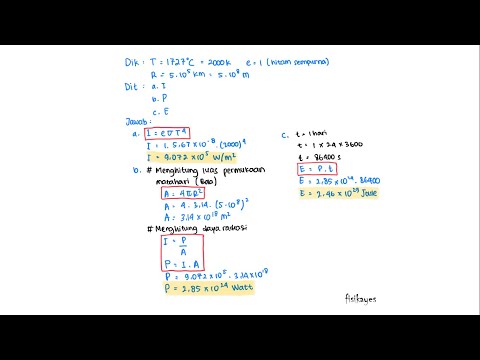 Dik : T = 1727°C = 2000k   e = 1 (hitam sempurna)
R = 5.10⁵ km = 5.10⁸ m
Dit : a. I
b. P
c. E
Jawab :
a. I = eσT⁴
I = 1. 5.67×10⁻⁸ .(2000)⁴
I = 9.072 × 10⁵ W/m²
b. # Menghitung luas permukaan
matahari (Bola)
A = 4πR²
A = 4. 3.14. (5.10⁸)²
A = 3.14 × 10¹⁸ m²
# Menghitung daya radiasi
I = P/A
P = I . A
P = 9.072 × 10⁵ . 3.14×10¹⁸
P = 2.85 × 10²⁴ Watt
c. t = 1 hari
t = 1 × 24 × 3600
t = 86400 s
E = P.t
E = 2.85 × 10²⁴. 86400
E = 2.46 × 10²⁹ Joule
fisikayes